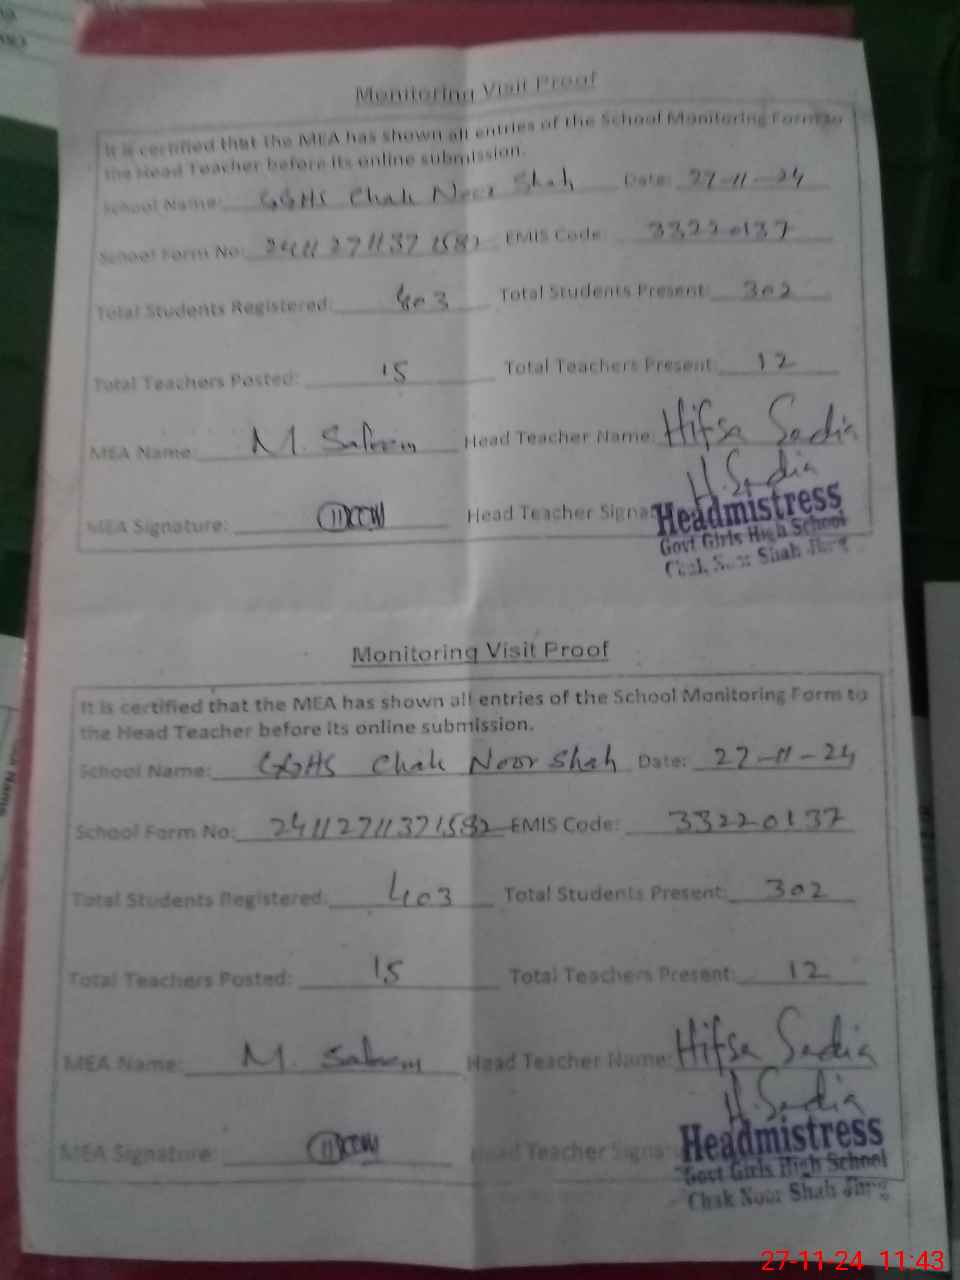 Monitoring Visit Proof
It is certified that the MEA has shown all entries of the School Monitoring Form to
the Head Teacher before its online submission.
School Name: GGHS Chak Noor Shah Date: 27-11-24
School Form No: 24112711371582 EMIS Code: 33220137
Total Students Registered: 403 Total Students Present: 302
Total Teachers Posted: 15 Total Teachers Present: 12
MEA Name: M. Saleem Head Teacher Name: Hifsa Sadia
H. Sadia
MEA Signature: Head Teacher Signa
Headmistress
Govt Girls High School
Chak Noor Shah Jhang
Monitoring Visit Proof
It is certified that the MEA has shown all entries of the School Monitoring Form to
the Head Teacher before its online submission.
School Name: GGHS Chak Noor Shah Date: 27-11-24
School Form No: 24112711371582 EMIS Code: 33220137
Total Students Registered: 403 Total Students Present: 302
Total Teachers Posted: 15 Total Teachers Present: 12
MEA Name: M. Saleem Head Teacher Name: Hifsa Sadia
H. Sadia
MEA Signature: Head Teacher Signa
Headmistress
Govt Girls High School
Chak Noor Shah Jhang
27-11-24 11:43